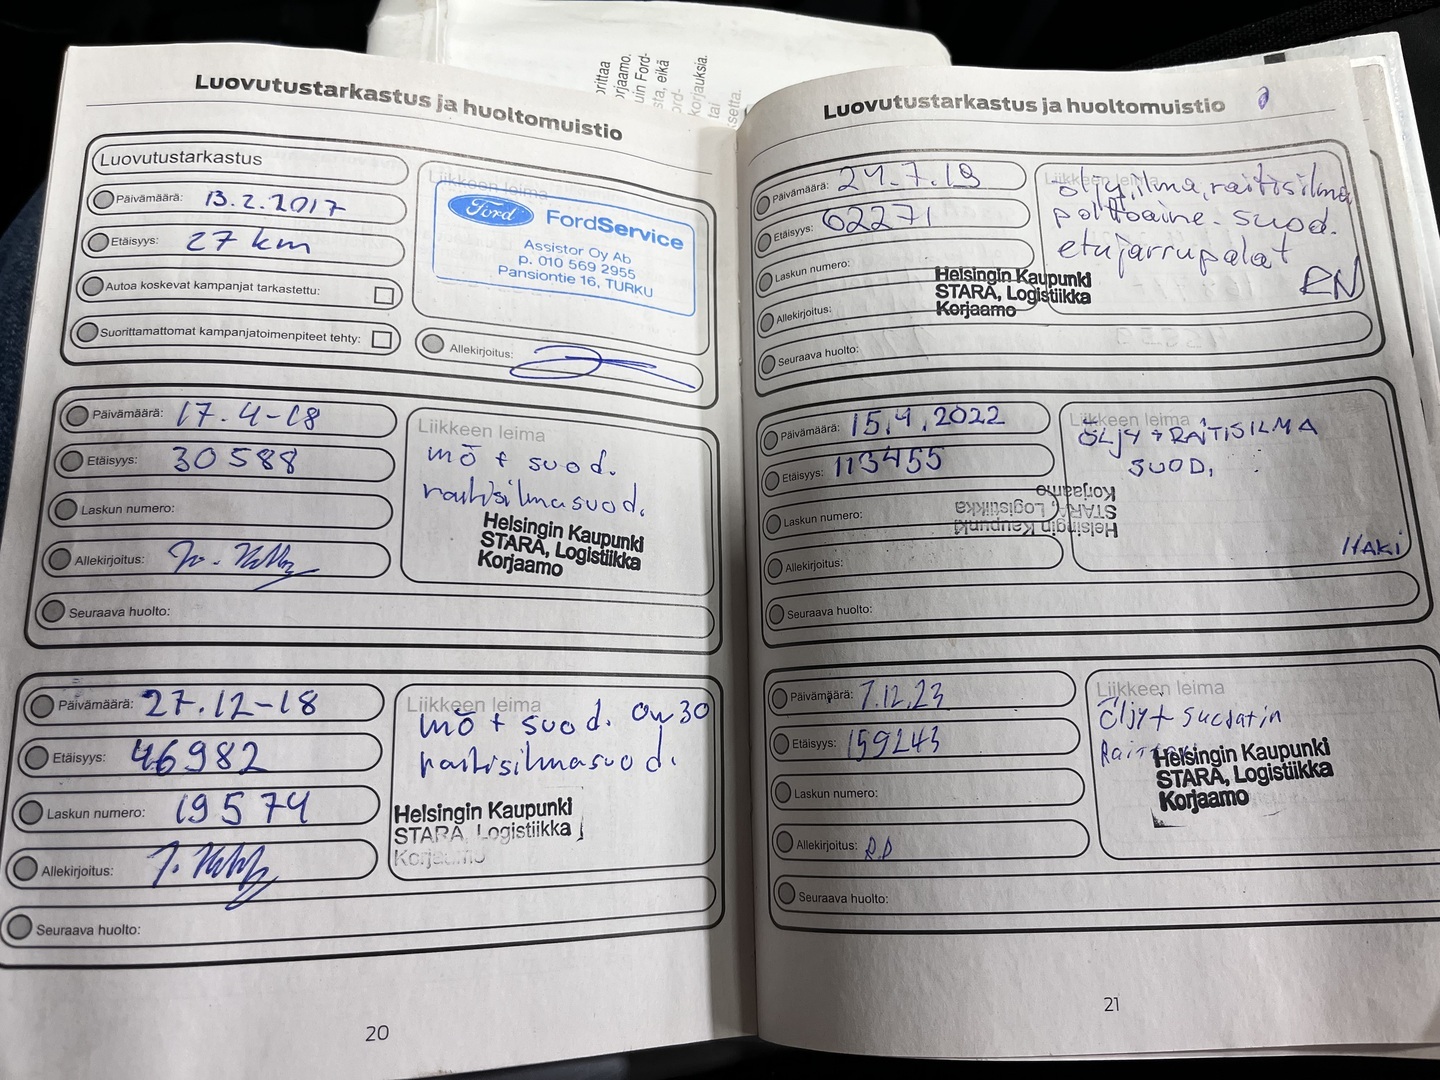 Luovutustarkastus ja huoltomuistio
Luovutustarkastus
Päivämäärä: 13.2.2017
Etäisyys: 27 km
Autoa koskevat kampanjat tarkastettu:
Suorittamattomat kampanjatoimenpiteet tehty:
Liikkeen leima
Ford FordService
Assistor Oy Ab
p. 010 569 2955
Pansiontie 16, TURKU
Allekirjoitus:
Päivämäärä: 17.4-18
Etäisyys: 30588
Laskun numero:
Allekirjoitus:
Seuraava huolto:
Liikkeen leima
mö + suod.
raitisilmasuod.
Helsingin Kaupunki
STARA, Logistiikka
Korjaamo
Päivämäärä: 27.12-18
Etäisyys: 46982
Laskun numero: 19574
Allekirjoitus:
Seuraava huolto:
Liikkeen leima
mö + suod. 0w30
raitisilmasuod.
Helsingin Kaupunki
STARA, Logistiikka
Korjaamo
20
rittaa
rjaamo.
uin Ford-
sta, eikä
ord-
korjauksia.
tai
setta.
Luovutustarkastus ja huoltomuistio
Päivämäärä: 24.7.19
Etäisyys: 62271
Laskun numero:
Allekirjoitus:
Seuraava huolto:
Liikkeen leima
öljy, ilma, raitisilma
polttoaine. suod.
etujarrupalat
RN
Helsingin Kaupunki
STARA, Logistiikka
Korjaamo
Päivämäärä: 15.4.2022
Etäisyys: 113455
Laskun numero:
Allekirjoitus:
Seuraava huolto:
Liikkeen leima
ÖLJY + RAITISILMA
SUOD.
Helsingin Kaupunki
STARA, Logistiikka
Korjaamo
HAKI
Päivämäärä: 7.12.23
Etäisyys: 159243
Laskun numero:
Allekirjoitus:
Seuraava huolto:
Liikkeen leima
Öljy + suodatin
Helsingin Kaupunki
STARA, Logistiikka
Korjaamo
21